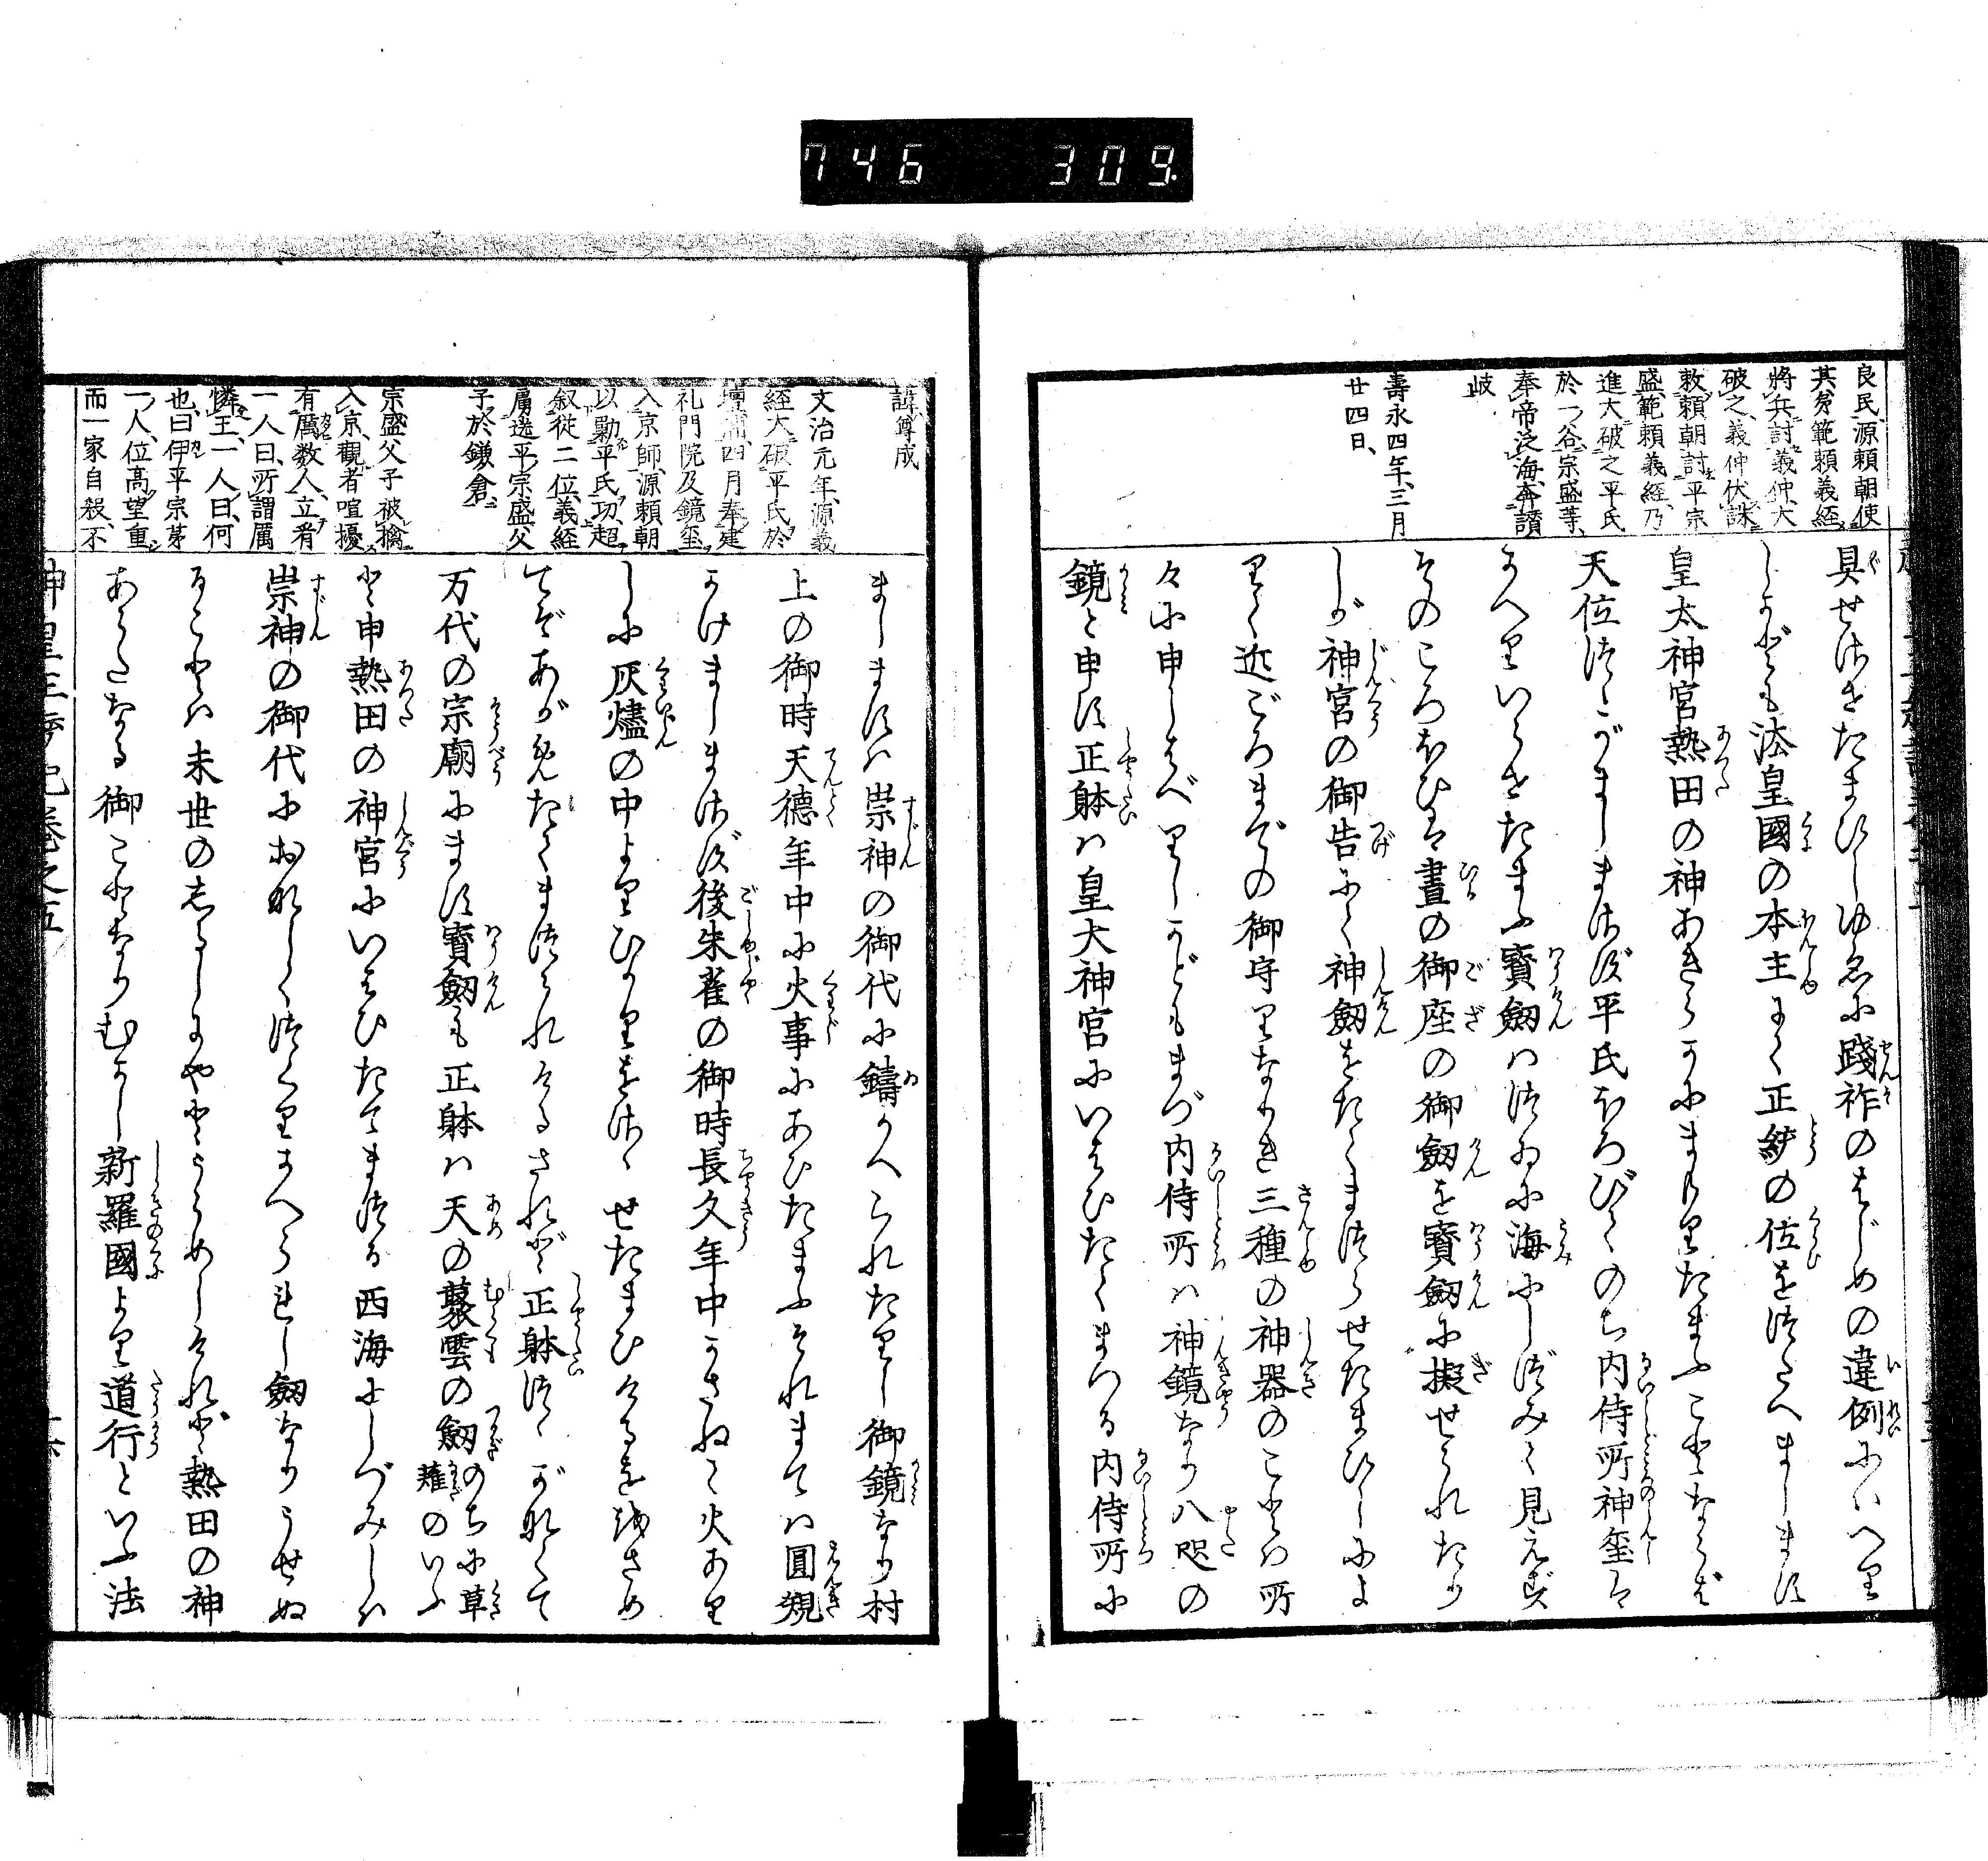 746 309
良民、源頼朝使
其弟範頼義経
將兵討義仲、大
破之、義仲伏誅
敕頼朝討平宗
盛、範頼義経、乃
進大破之平氏
於一谷、宗盛等、
奉帝泛海、奔讃
岐
壽永四年、三月
廿四日、
具せさせたまひしゆゑに踐祚のはじめの違例にハへり
しかども法皇國の本主にて正統の位をつたへまします
皇太神宮熱田の神あきらかにまもりたまふことなれば
天位つゝがましまさず平氏ほろびてのち内侍所神璽は
かへりいらせたまふ寳劔ハつゐに海にしづみて見えず
そのころほひは晝の御座の御劔を寳劔に擬せられたり
しが神宮の御告にて神劔をたてまつらせたまひしによ
りて近ごろまでの御守りなりき三種の神器のことハ所
々に申しはべりしかどもまづ内侍所ハ神鏡なり八咫の
鏡と申す正躰ハ皇大神宮にいはひたてまつる内侍所に
諱尊成
文治元年、源義
経大破平氏於
壇浦、四月奉建
礼門院及鏡璽
入京師、源頼朝
以勲平氏功、超
叙従二位、義経
屬送平宗盛父
子於鎌倉、
宗盛父子被擒
入京、觀者喧擾
有厲数人、立肴
一人曰、所謂厲
憐王、一人曰、何
也、曰伊平宗茅
一人、位高望重
而一家自殺、不
ましますハ崇神の御代に鑄かへられたりし御鏡なり村
上の御時天德年中に火事にあひたまふそれまてハ圓規
かけましまさず後朱雀の御時長久年中かさねて火あり
しに灰燼の中よりひかりをさゝせたまひけるををさめ
てぞあがめたてまつられけるされど正躰つゝがなくて
万代の宗廟にまします寳劔も正躰ハ天の藂雲の劔のちに草薙のいふ
と申熱田の神宮にいはひたてまつる西海にしづみしハ
崇神の御代におなしくつくりかへられし劔なりうせぬ
ることハ末世のしるしにやとうらめしけれど熱田の神
あらたなる御ことなりむかし新羅國より道行といふ法
神皇正統記巻之五